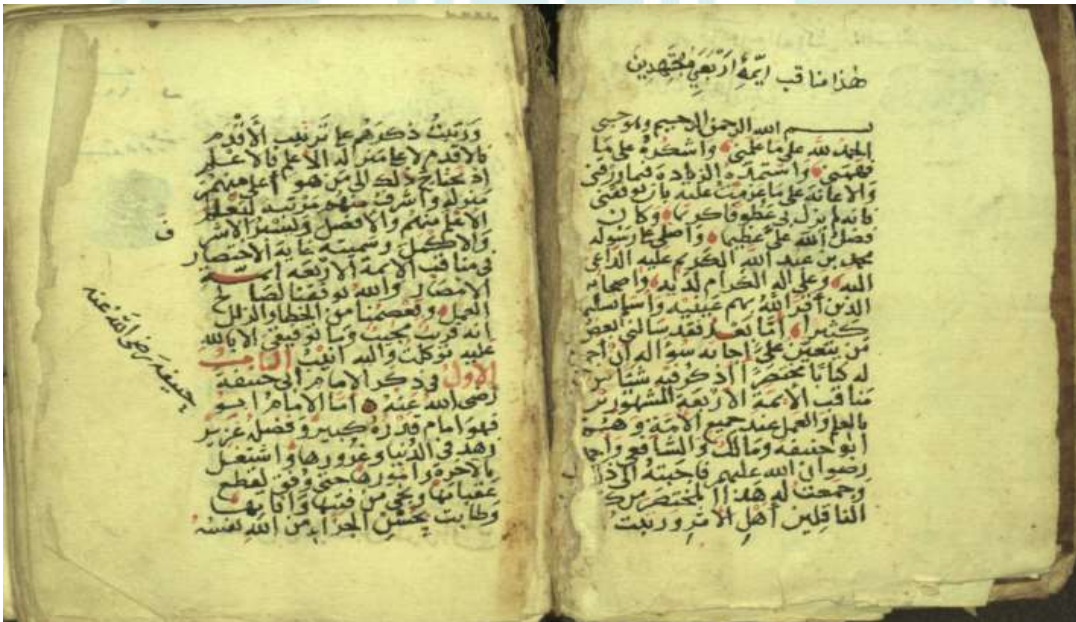 هذا مناقب ايمة اربعي مجتهدين
بسم الله الرحمن الرحيم وهو حسبي
الحمد لله على ما علمني واشكره على ما
فهمني واستمده الزيادة فيما رزقني
والاعانة على ما عزمت عليه بان يوفقني
فانه لم يزل بي عطوفا كريما وكان
فضل الله علي عظيما واصلي على رسوله
محمد بن عبد الله الكريم عليه الداعي
اليه وعلى اله الكرام لديه واصحابه
الذين اقر الله بهم عينيه وسلم تسليما
كثيرا اما بعد فقد سالني بعض
من يتعين علي اجابة سؤاله ان اجمع
له كتابا مختصرا اذكر فيه شيئا من
مناقب الايمة الاربعة المشهورين
بالعلم والعمل عند جميع الامة وهم
ابو حنيفة ومالك والشافعي واحمد
رضوان الله عليهم فاجبته الى ذلك
وجمعت له هذا المختصر من
الناقلين اهل الاثر ورتبت
ورتبت ذكرهم على ترتيب الاقدم
فالاقدم لا على منزلة الاعلم فالاعلم
اذ يحتاج ذلك الى من هو اعلى منهم
منزلة واشرف منهم مرتبة ليعلم
الاعلم منهم والافضل
والاكمل وسميته غاية الاختصار
في مناقب الايمة الاربعة ايمة
الامصار والله يوفقنا لصالح
العمل ويعصمنا من الخطا والزلل
انه قريب مجيب وما توفيقي الا بالله
عليه توكلت واليه انيب الباب
الاول في ذكر الامام ابي حنيفة
رضي الله عنه اما الامام ابو
فهو امام قدره كبير وفضله غزير
زهد في الدنيا وغرورها واشتغل
بالاخرة وامورها حتى وفق لقطع
عقباتها ونجي من فتنها وافاتها
وطابت بحسن الجزاء من الله نفسه
حنيفة رضي الله عنه